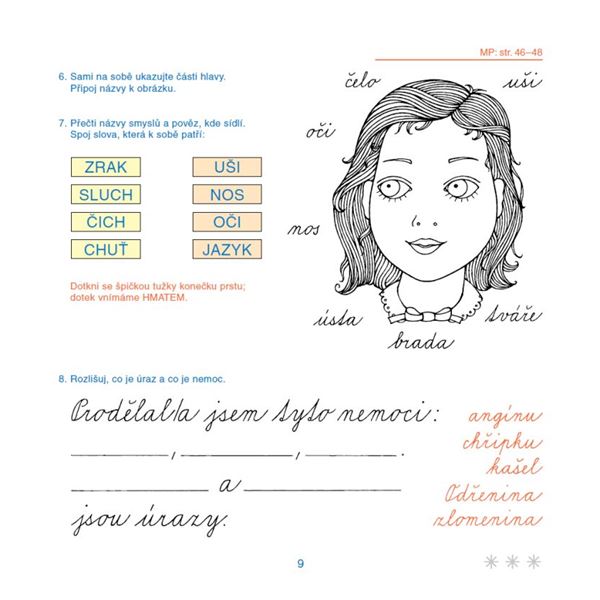 MP: str. 46–48
6. Sami na sobě ukazujte části hlavy.
Připoj názvy k obrázku.
čelo
uši
oči
nos
ústa
tváře
brada
7. Přečti názvy smyslů a pověz, kde sídlí.
Spoj slova, která k sobě patří:
ZRAK UŠI
SLUCH NOS
ČICH OČI
CHUŤ JAZYK
Dotkni se špičkou tužky konečku prstu;
dotek vnímáme HMATEM.
8. Rozlišuj, co je úraz a co je nemoc.
Prodělal/a jsem tyto nemoci:
____, ____, ____.
____ a ____
jsou úrazy.
angínu
chřipku
kašel
Odřenina
zlomenina
9